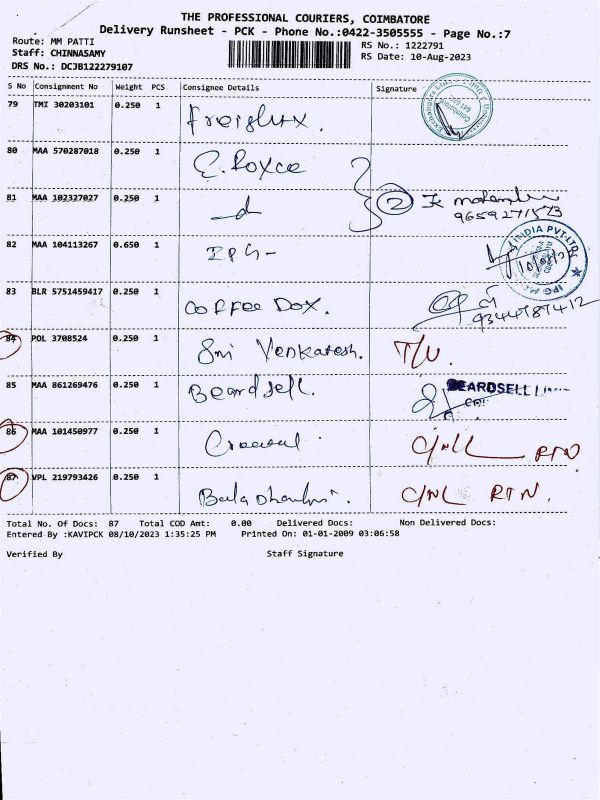 THE PROFESSIONAL COURIERS, COIMBATORE
Delivery Runsheet - PCK - Phone No.:0422-3505555 - Page No.:7
Route: MM PATTI
Staff: CHINNASAMY
DRS No.: DCJB122279107
RS No.: 1222791
RS Date: 10-Aug-2023
S No Consignment No Weight PCS Consignee Details Signature
79 TMI 30203101 0.250 1
80 MAA 570287018 0.250 1 E. Royce
81 MAA 102327027 0.250 1 2
9659271573
82 MAA 104113267 0.650 1 IPG-
INDIA PVT-LTD
83 BLR 5751459417 0.250 1 COFFEE DOX.
84 POL 3708524 0.250 1 Sri Venkatesh. T/U.
85 MAA 861269476 0.250 1 Beardsell. BEARDSELL
86 MAA 101450977 0.250 1 RTN
87 VPL 219793426 0.250 1 RTN.
Total No. Of Docs: 87 Total COD Amt: 0.00 Delivered Docs: Non Delivered Docs:
Entered By :KAVIPCK 08/10/2023 1:35:25 PM Printed On: 01-01-2009 03:06:58
Verified By Staff Signature